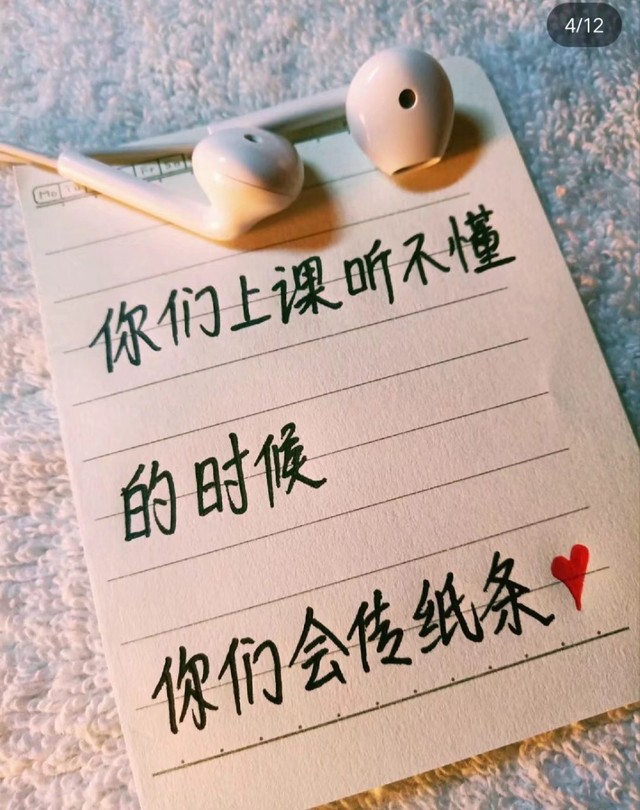 4/12
Mo Tu Fr Sa
你们上课听不懂
的时候
你们会传纸条